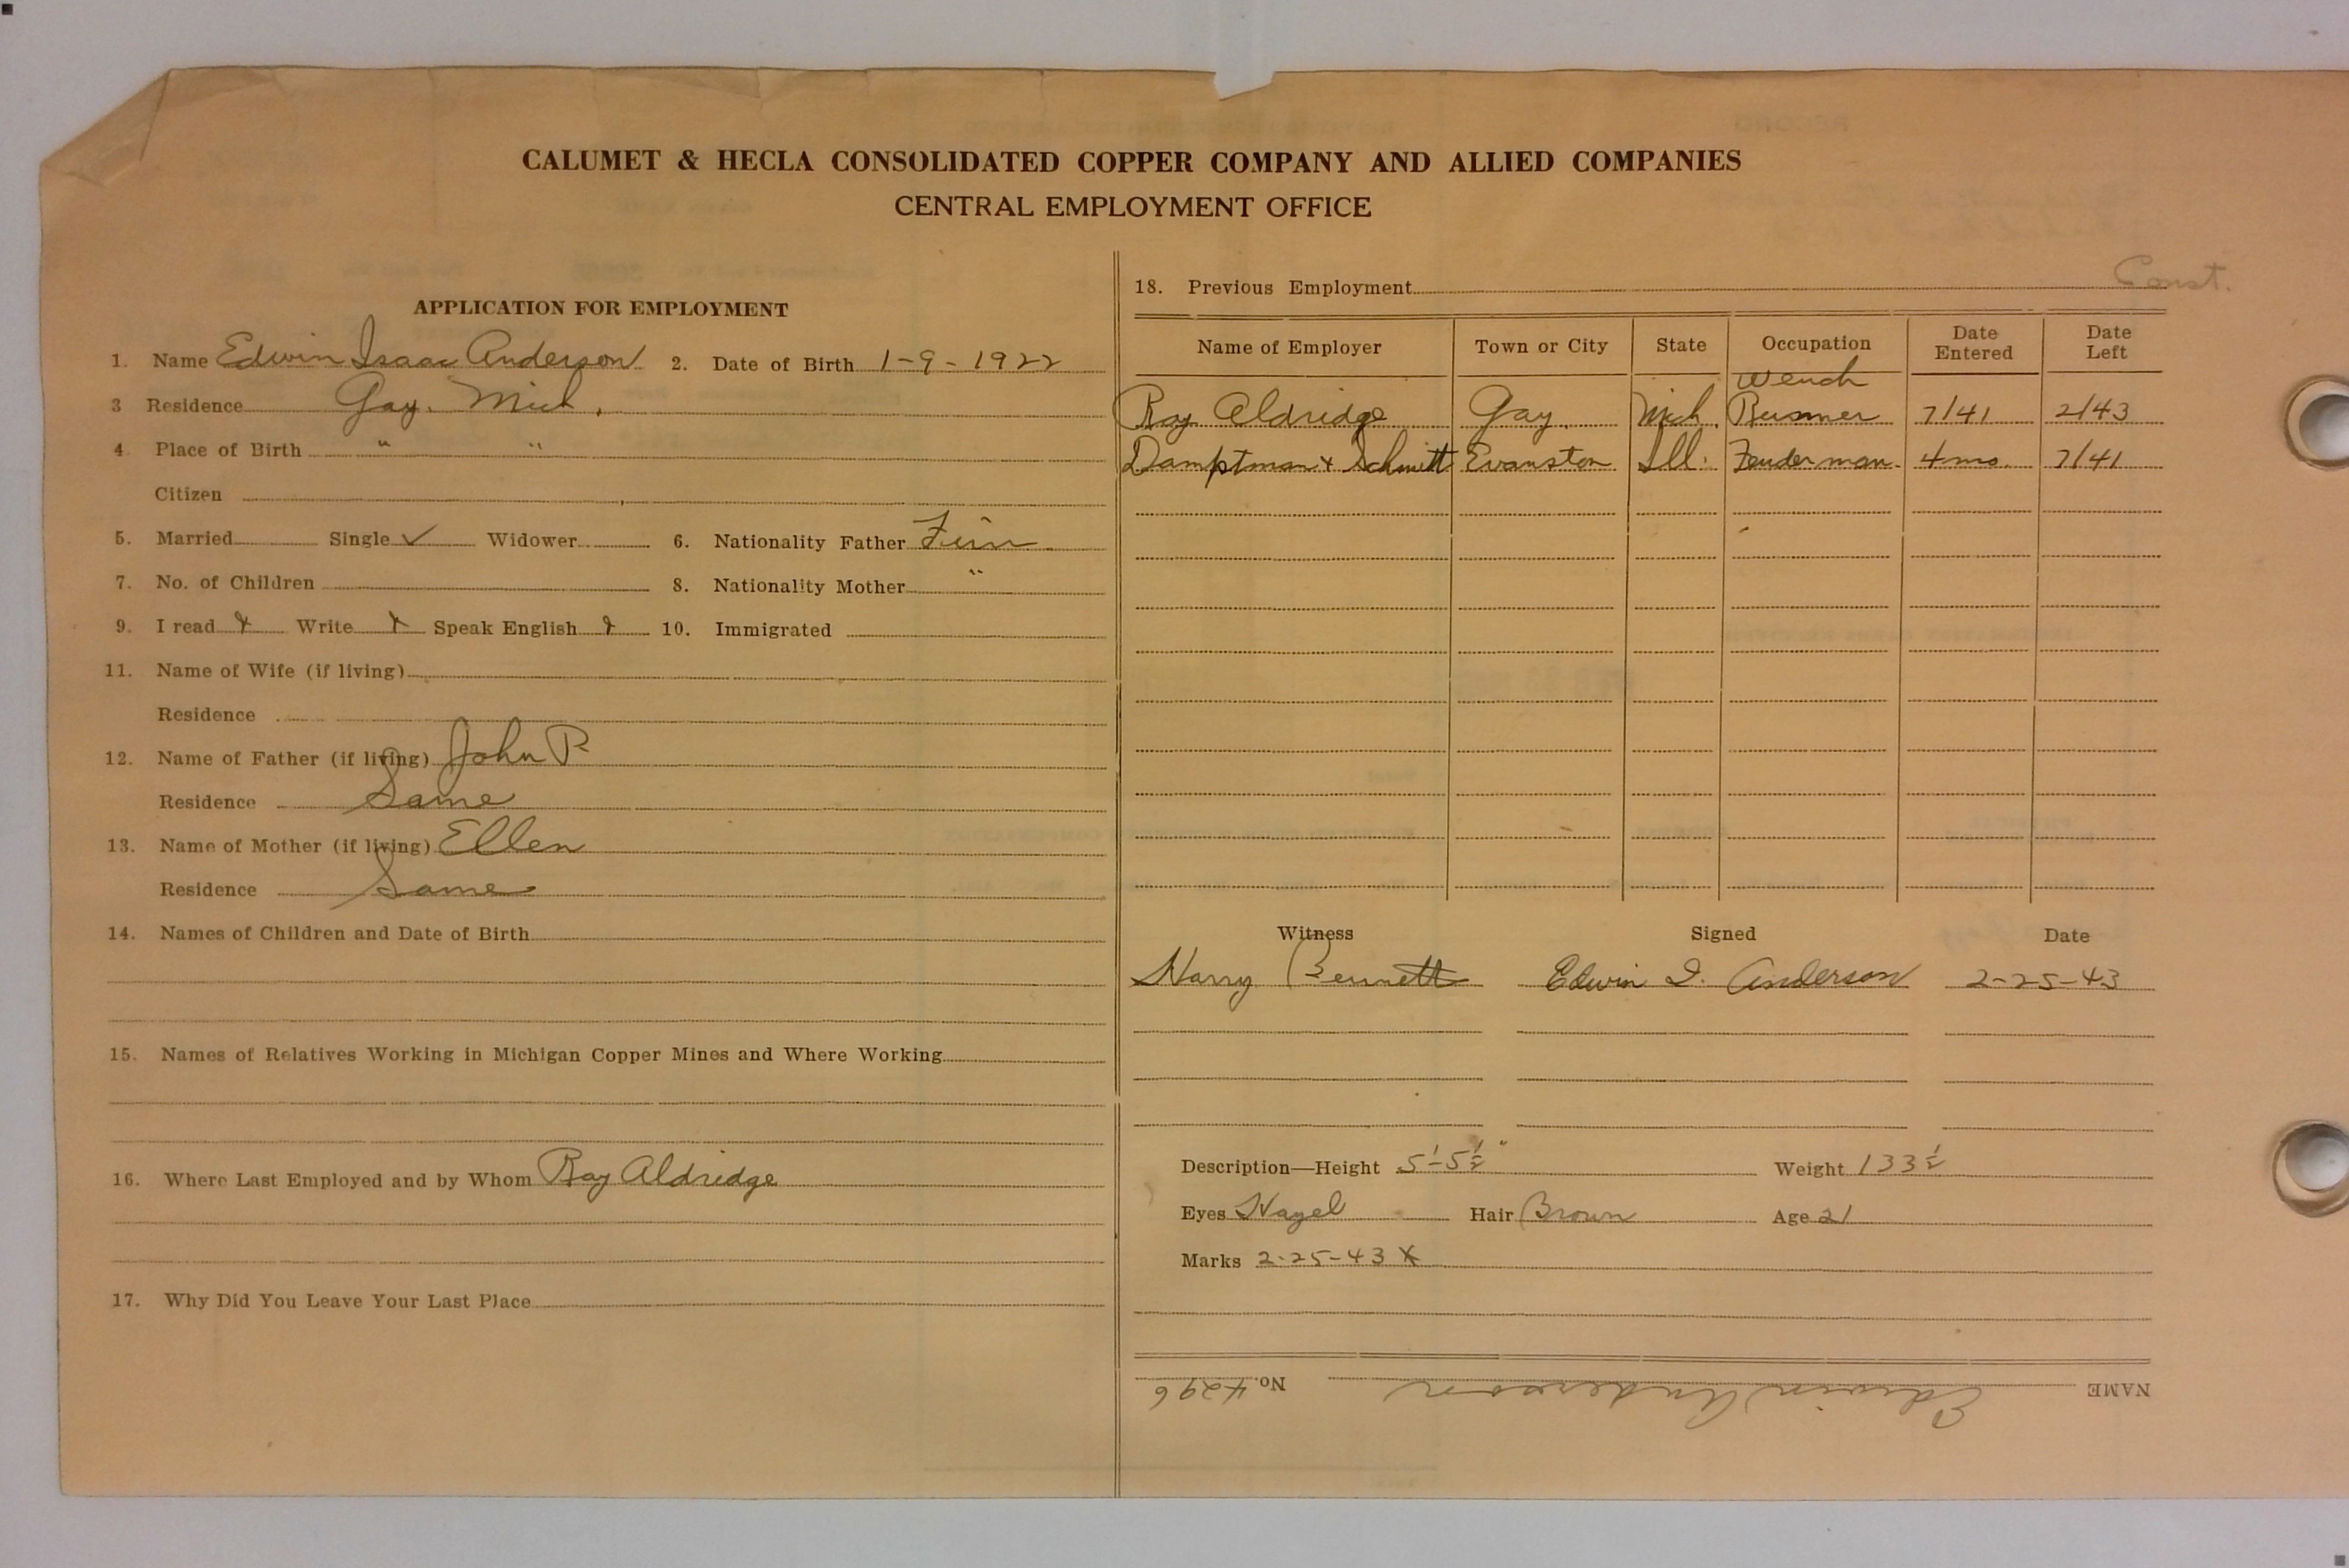 CALUMET & HECLA CONSOLIDATED COPPER COMPANY AND ALLIED COMPANIES
CENTRAL EMPLOYMENT OFFICE
APPLICATION FOR EMPLOYMENT
1. Name Edwin Isaac Anderson 2. Date of Birth 1-9-1922
3 Residence Gay. Mich.
4 Place of Birth " "
Citizen
5. Married Single ✓ Widower 6. Nationality Father Finn
7. No. of Children 8. Nationality Mother "
9. I read Write Speak English 10. Immigrated
11. Name of Wife (if living)
Residence
12. Name of Father (if living) John P
Residence Same
13. Name of Mother (if living) Ellen
Residence Same
14. Names of Children and Date of Birth
15. Names of Relatives Working in Michigan Copper Mines and Where Working
16. Where Last Employed and by Whom Roy Aldridge
17. Why Did You Leave Your Last Place
Const.
18. Previous Employment
Name of Employer Town or City State Occupation Date Entered Date Left
Roy Aldridge Gay. Mich. 7/41 2/43
& Schmitt Evanston Ill. Fenderman 4 mo. 7/41
Witness Signed Date
Harry Bennett Edwin I. Anderson 2-25-43
Description—Height 5'-5½" Weight 133½
Eyes Hazel Hair Brown Age 21
Marks 2-25-43 X
NAME Edwin Anderson No. 4296